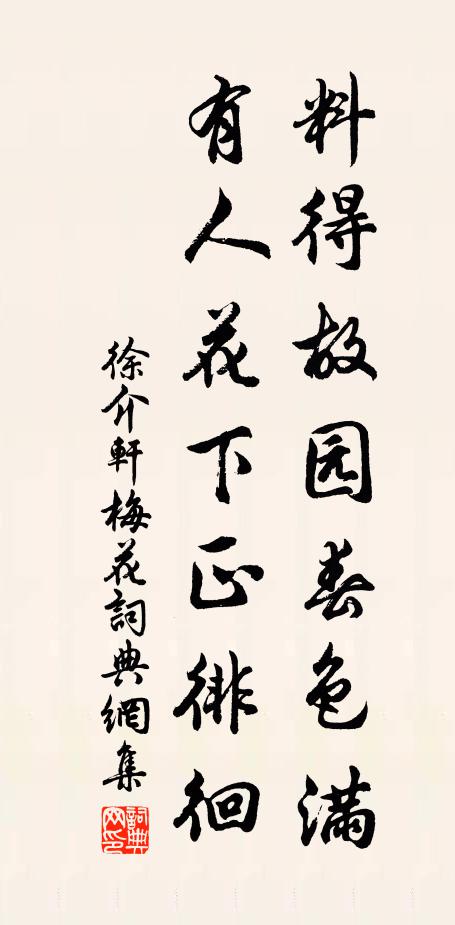 料得故园春色满
有人花下正徘徊
徐介軒梅花詞典網集
詞典網印